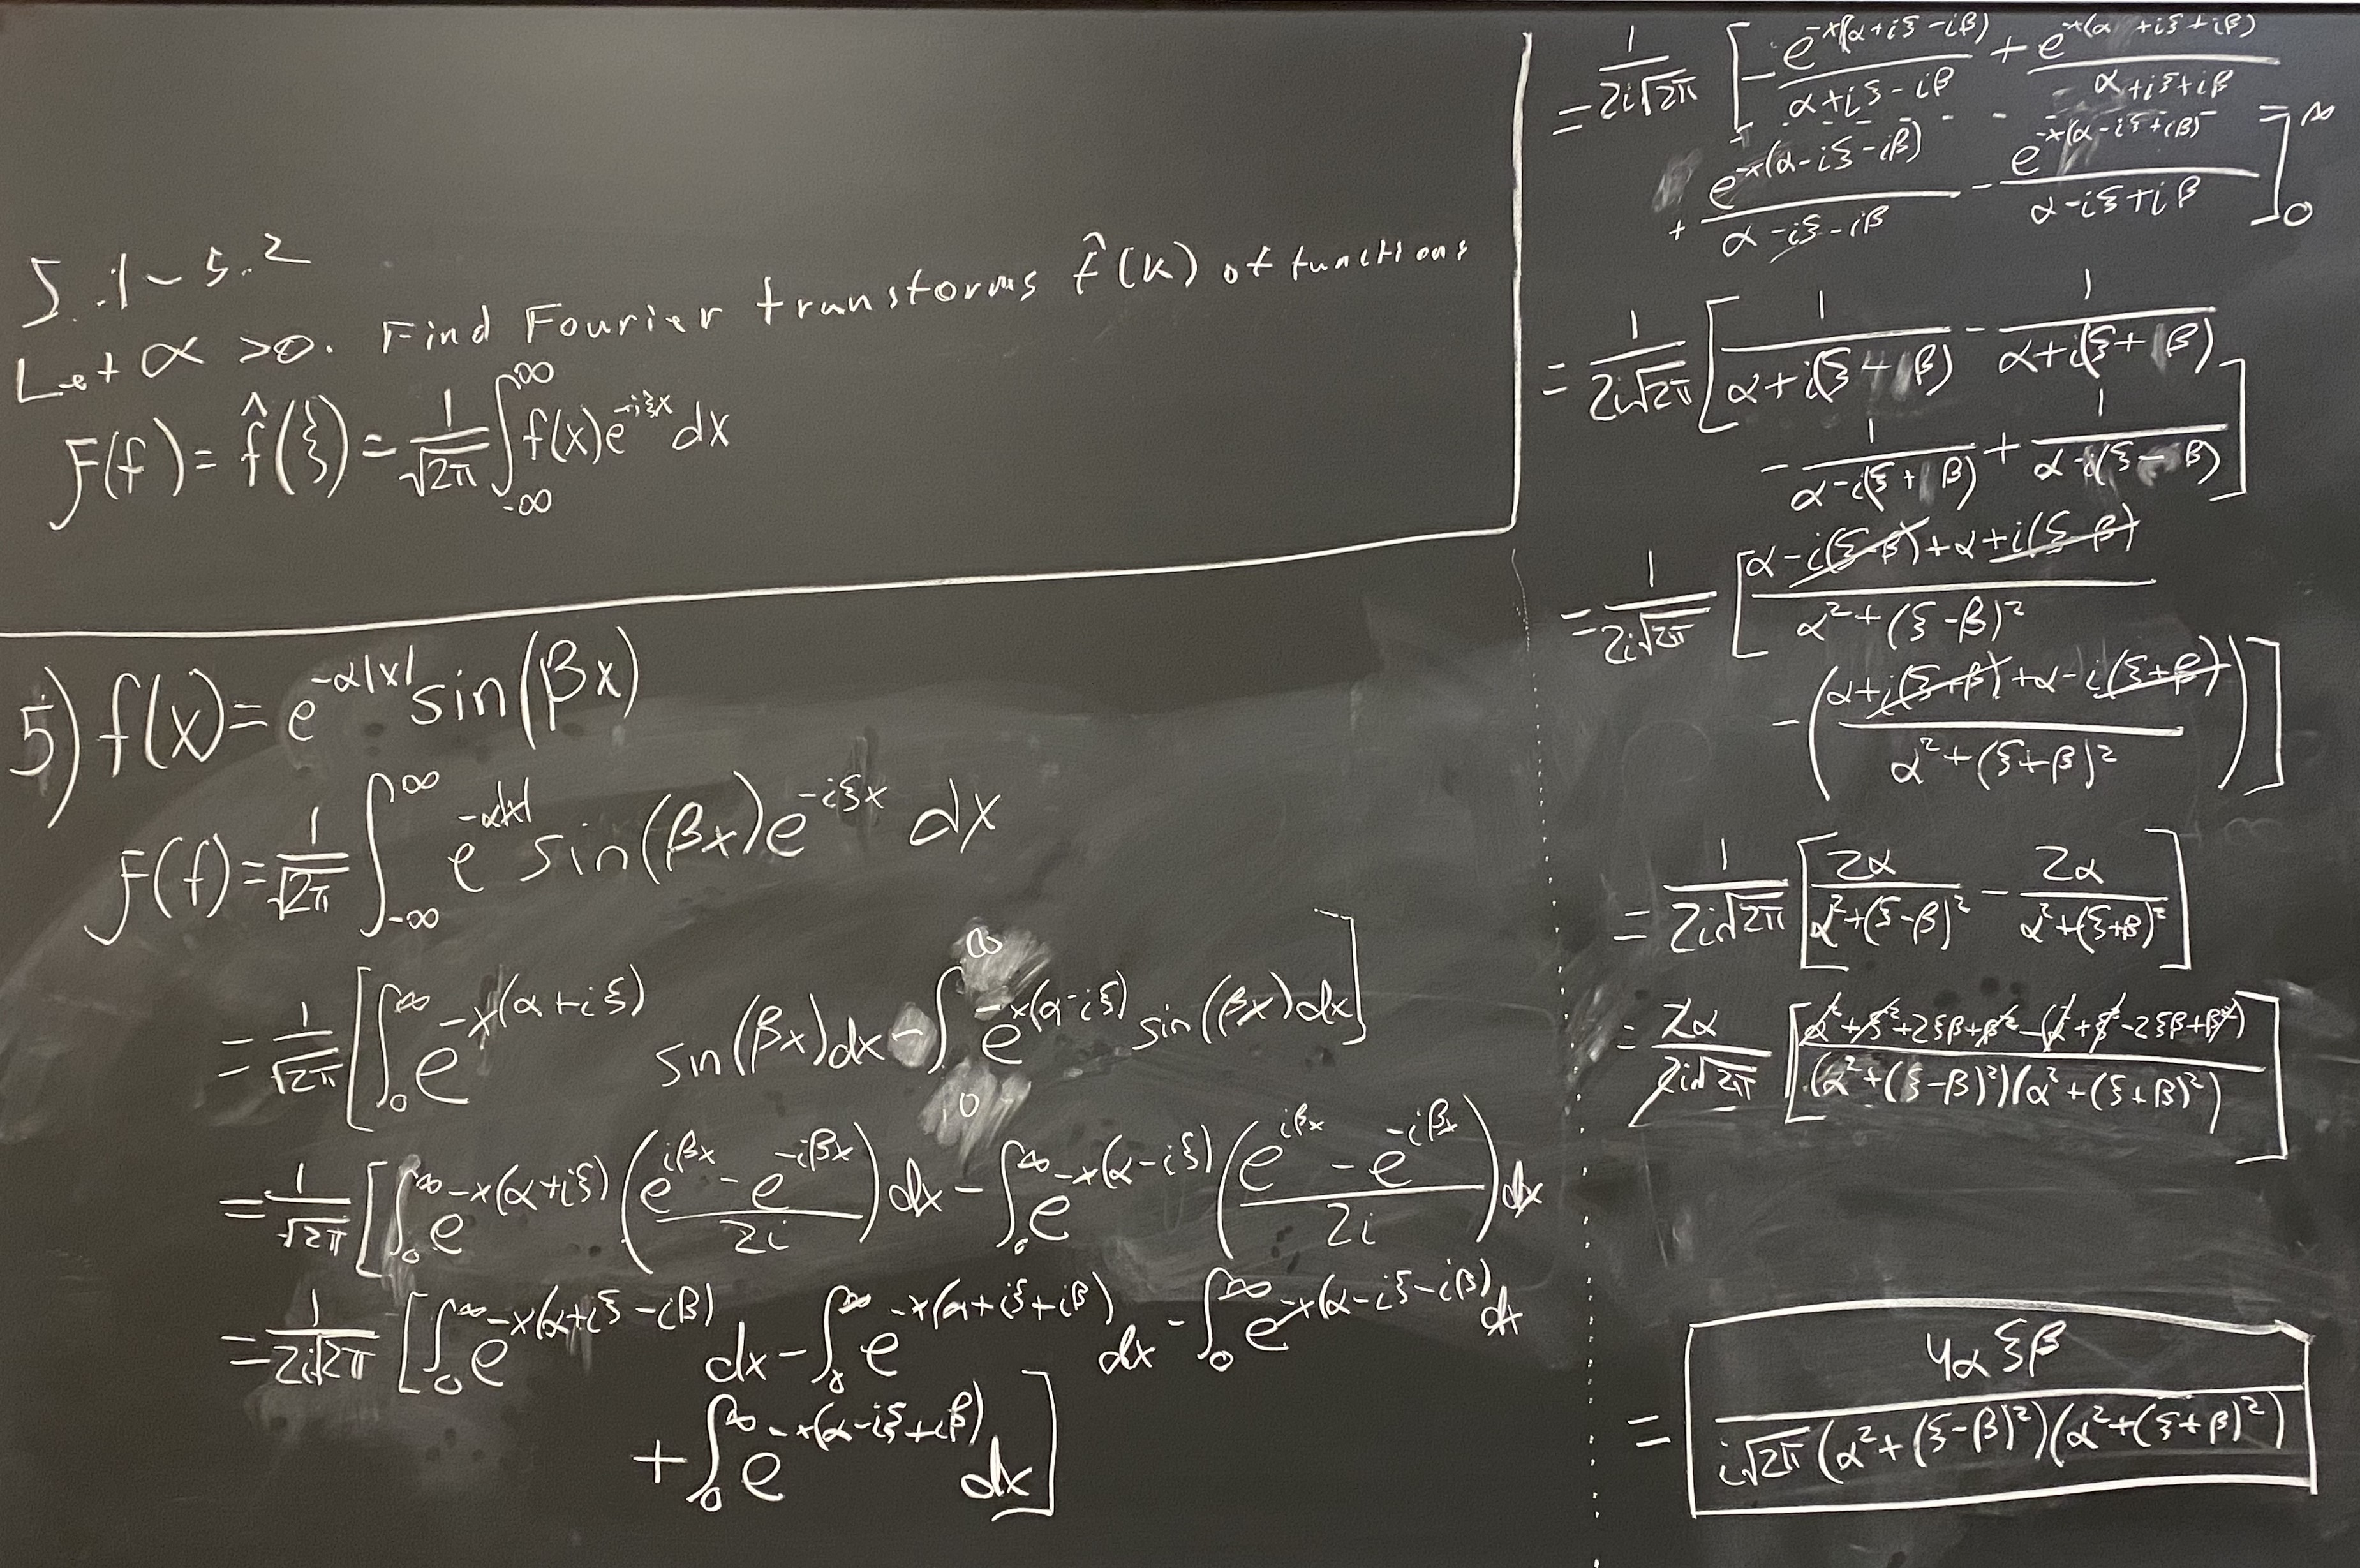 5.1-5.2
Let α >0. Find Fourier transforms f̂(k) of functions
F(f) = f̂(ξ) = 1/√2π ∫_{-∞}^{∞} f(x)e^{-iξx} dx
5) f(x) = e^{-α|x|} sin(βx)
F(f) = 1/√2π ∫_{-∞}^{∞} e^{-α|x|} sin(βx) e^{-iξx} dx
= 1/√2π [∫_0^∞ e^{-x(α+iξ)} sin(βx)dx - ∫_0^∞ e^{-x(α-iξ)} sin(βx)dx]
= 1/√2π [∫_0^∞ e^{-x(α+iξ)} ((e^{iβx} - e^{-iβx})/2i) dx - ∫_0^∞ e^{-x(α-iξ)} ((e^{iβx} - e^{-iβx})/2i) dx
= 1/2i√2π [∫_0^∞ e^{-x(α+iξ-iβ)} dx - ∫_0^∞ e^{-x(α+iξ+iβ)} dx - ∫_0^∞ e^{-x(α-iξ-iβ)} dx
+ ∫_0^∞ e^{-x(α-iξ+iβ)} dx]
= 1/2i√2π [- e^{-x(α+iξ-iβ)}/(α+iξ-iβ) + e^{-x(α+iξ+iβ)}/(α+iξ+iβ)
+ e^{-x(α-iξ-iβ)}/(α-iξ-iβ) - e^{-x(α-iξ+iβ)}/(α-iξ+iβ)]_0^∞
= 1/2i√2π [1/(α+i(ξ-β)) - 1/(α+i(ξ+β))
- 1/(α-i(ξ+β)) + 1/(α-i(ξ-β))]
= 1/2i√2π [(α-i(ξ-β)+α+i(ξ-β))/(α²+(ξ-β)²)
- ((α+i(ξ+β)+α-i(ξ+β))/(α²+(ξ+β)²))]
= 1/2i√2π [2α/(α²+(ξ-β)²) - 2α/(α²+(ξ+β)²)]
= 2α/2i√2π [(α²+ξ²+2ξβ+β²-(α²+ξ²-2ξβ+β²))/((α²+(ξ-β)²)(α²+(ξ+β)²))]
= 4αξβ/(i√2π (α²+(ξ-β)²)(α²+(ξ+β)²))